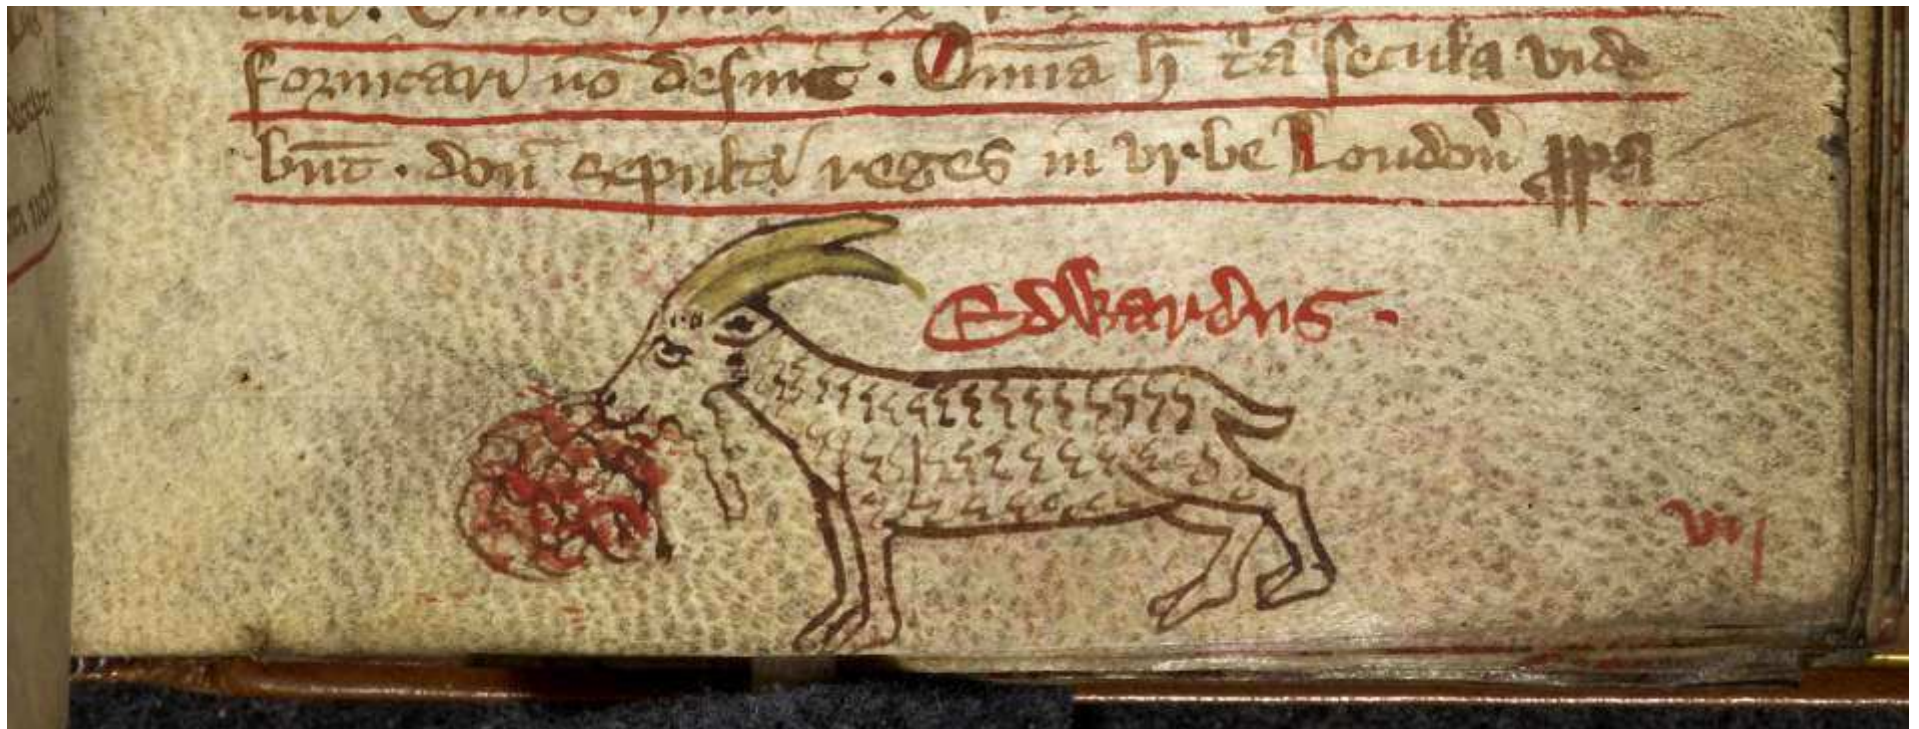 fornicari nō desinūt. Omnia h̄ t̄a secula vide
būt. don̄ sepulti reges in urbe London̄ ꝓpa
Edwardus.
vij